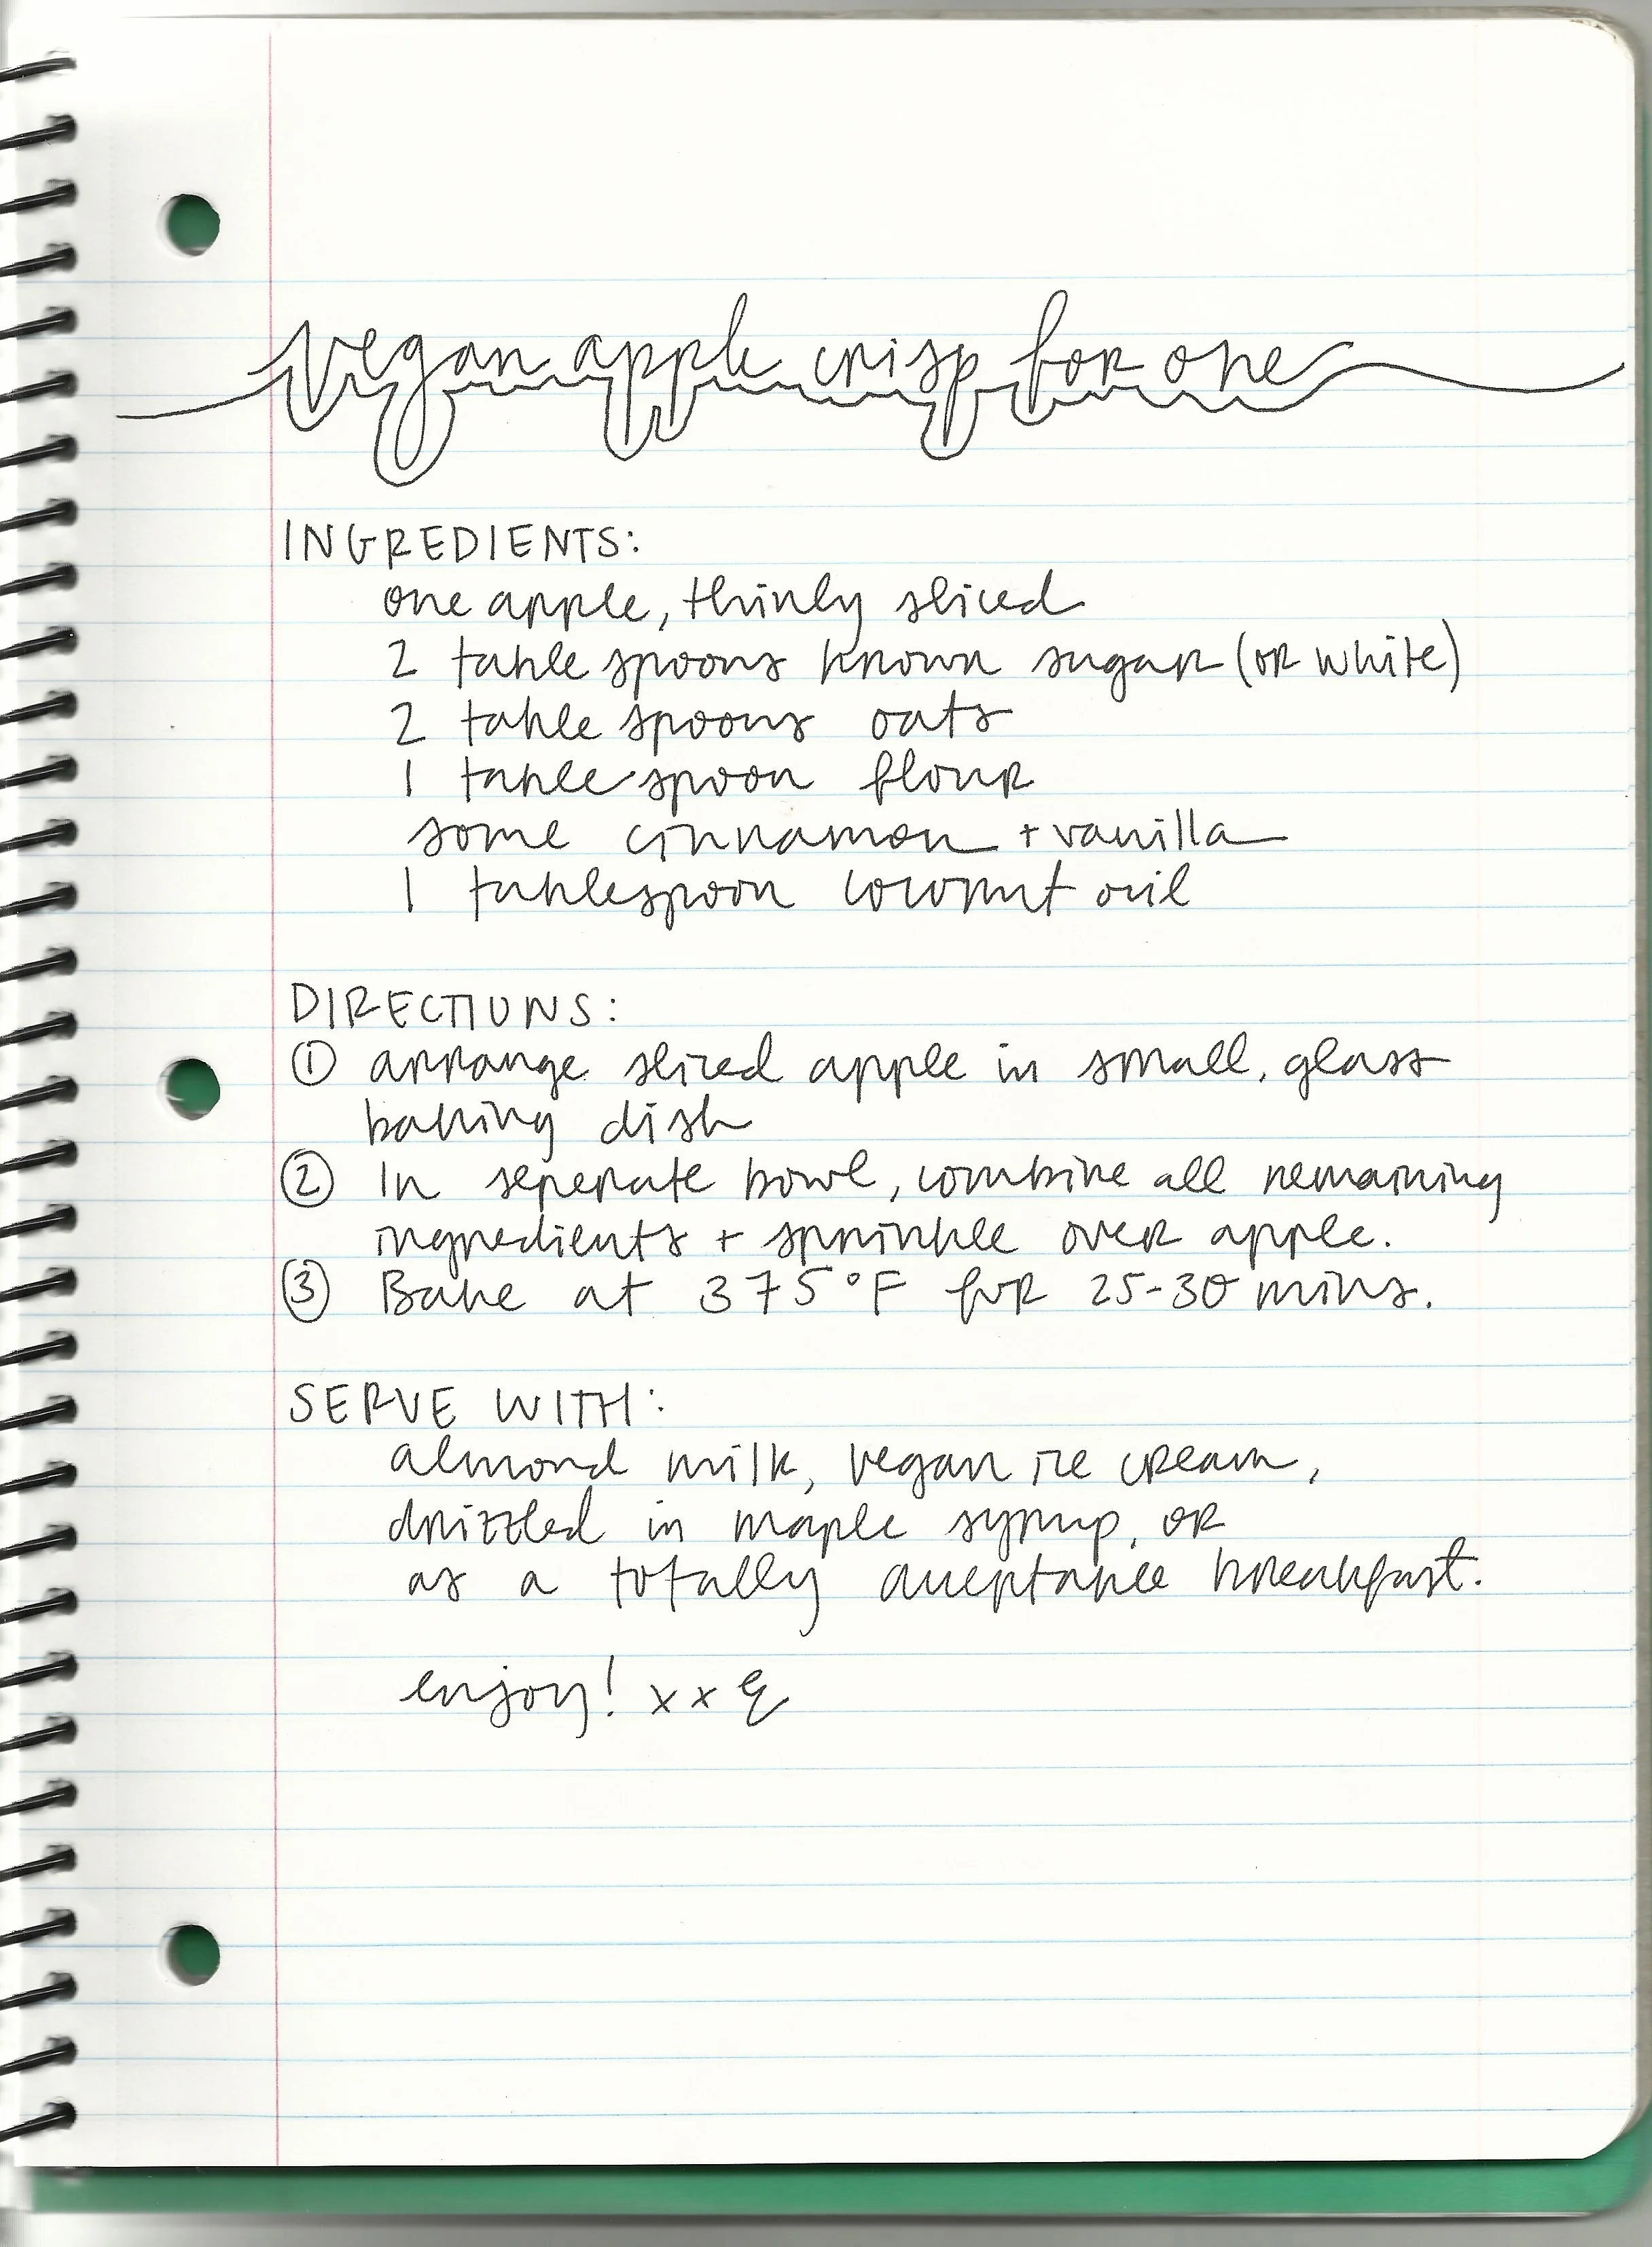 vegan apple crisp for one
INGREDIENTS:
one apple, thinly sliced
2 tablespoons brown sugar (or white)
2 tablespoons oats
1 tablespoon flour
some cinnamon + vanilla
1 tablespoon coconut oil
DIRECTIONS:
① arrange sliced apple in small, glass
baking dish
② In seperate bowl, combine all remaining
ingredients + sprinkle over apple.
③ Bake at 375°F for 25-30 mins.
SERVE WITH:
almond milk, vegan ice cream,
drizzled in maple syrup, or
as a totally acceptable breakfast.
enjoy! xx